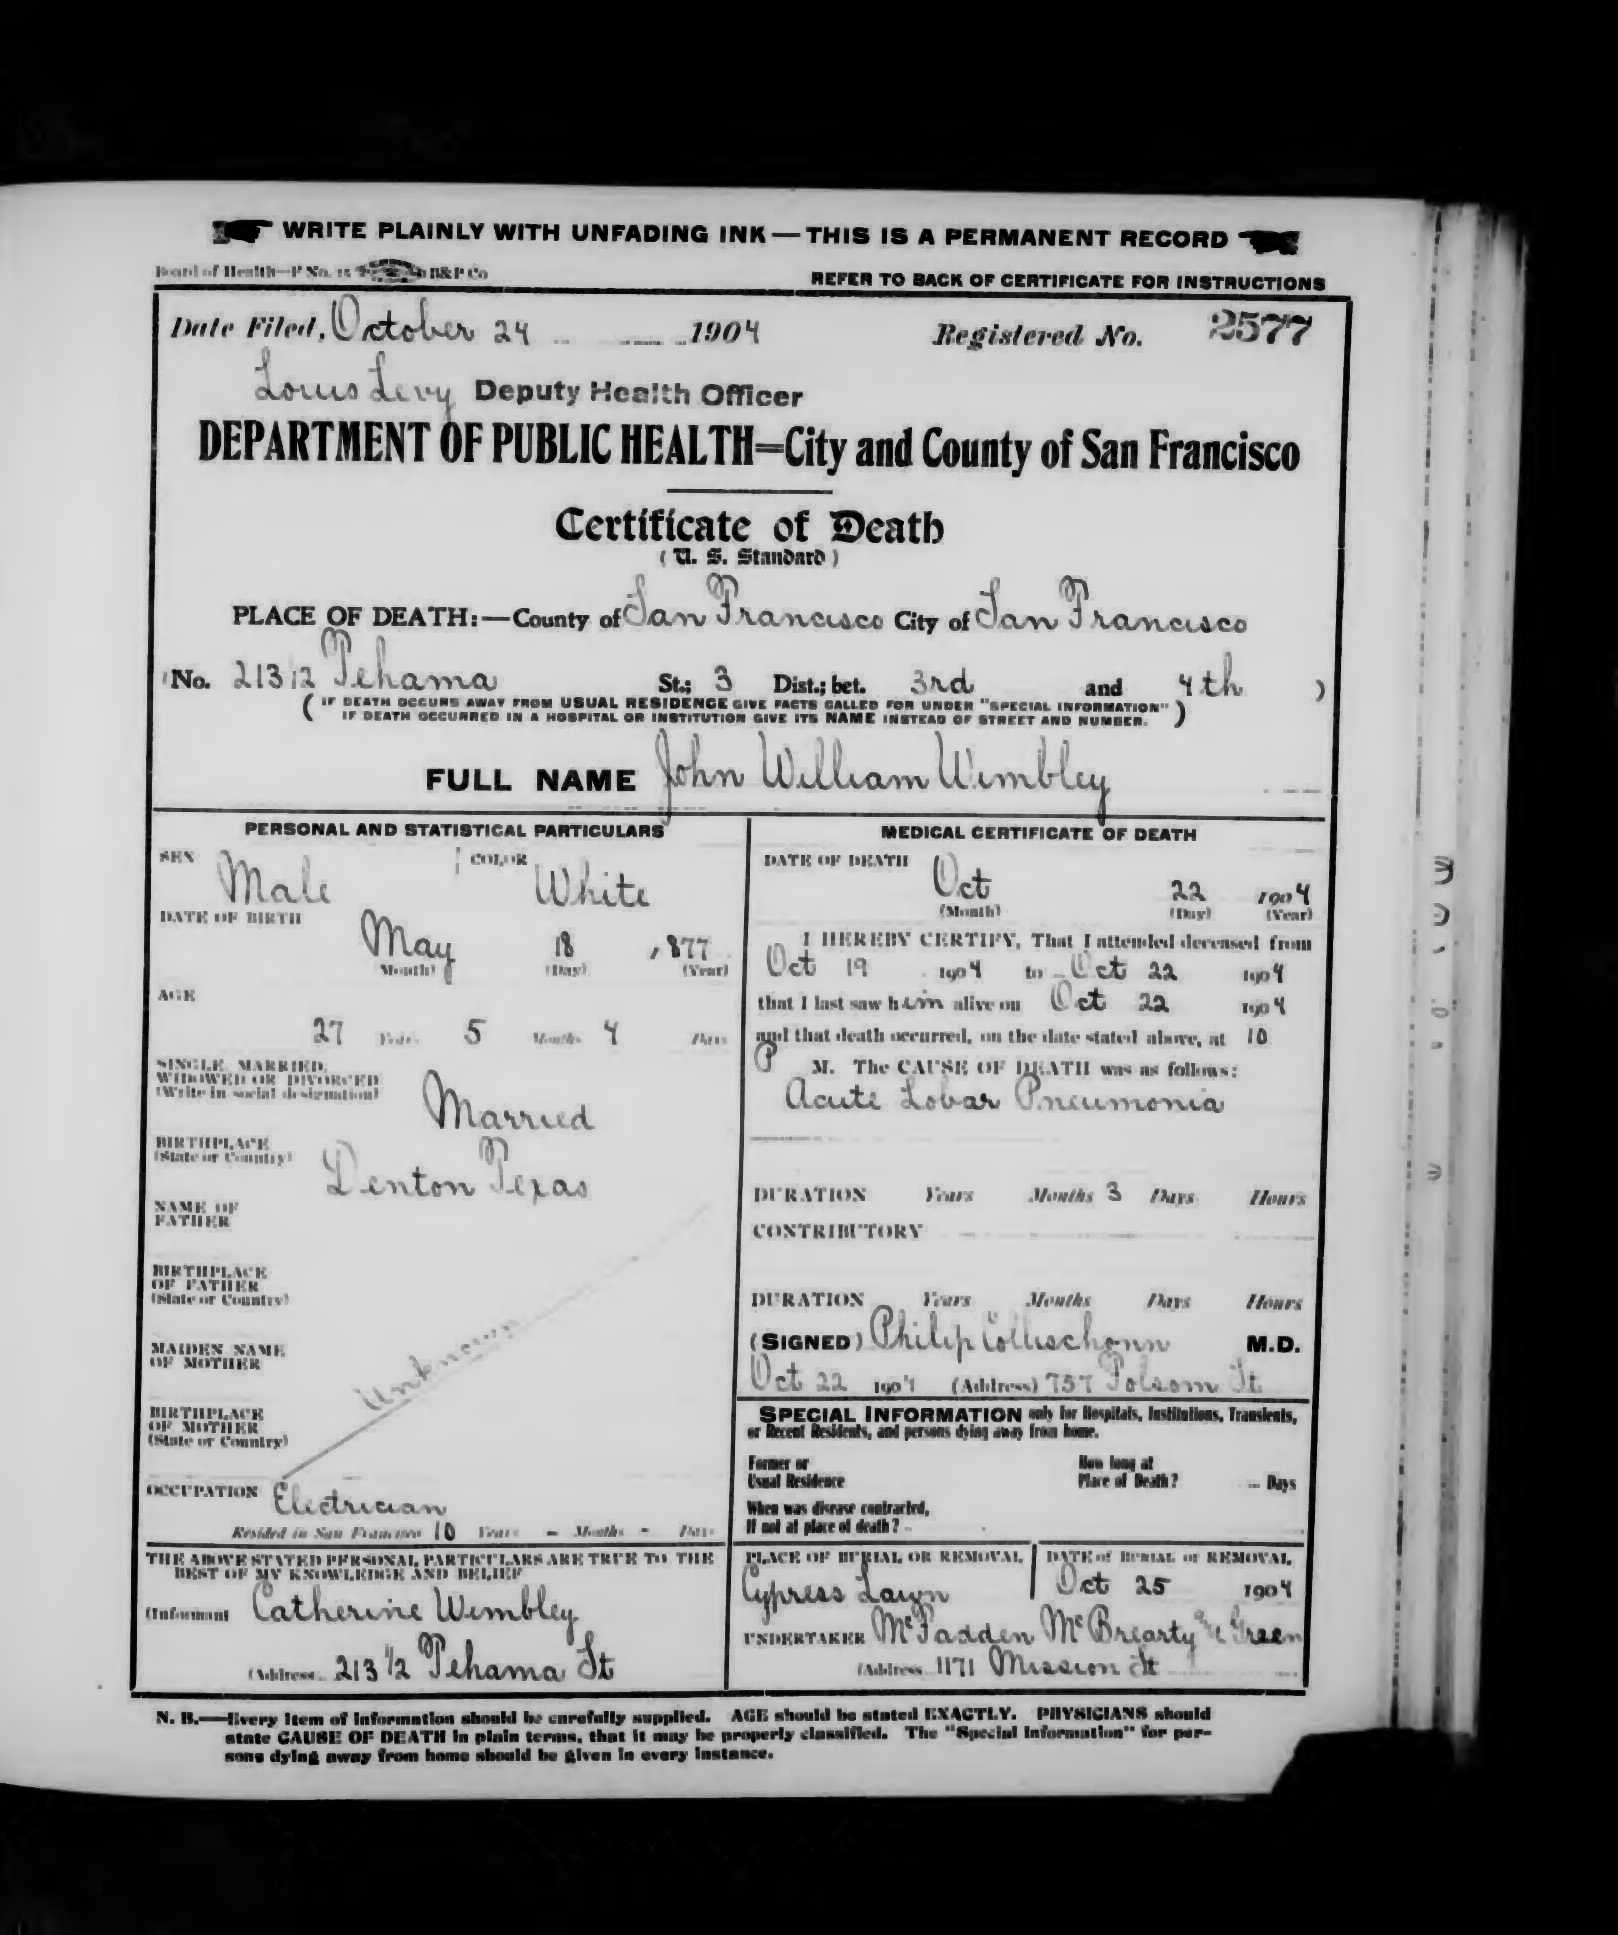 WRITE PLAINLY WITH UNFADING INK—THIS IS A PERMANENT RECORD
Board of Health—F No. 15 B&P Co
REFER TO BACK OF CERTIFICATE FOR INSTRUCTIONS
Date Filed, October 24 1904 Registered No. 2577
Louis Levy Deputy Health Officer
DEPARTMENT OF PUBLIC HEALTH=City and County of San Francisco
Certificate of Death
( U. S. Standard )
PLACE OF DEATH:—County of San Francisco City of San Francisco
(No. 213 1/2 Tehama St.; 3 Dist.; bet. 3rd and 4th )
( IF DEATH OCCURS AWAY FROM USUAL RESIDENCE GIVE FACTS CALLED FOR UNDER "SPECIAL INFORMATION"
IF DEATH OCCURRED IN A HOSPITAL OR INSTITUTION GIVE ITS NAME INSTEAD OF STREET AND NUMBER. )
FULL NAME John William Wimbley
PERSONAL AND STATISTICAL PARTICULARS
SEX Male COLOR White
DATE OF BIRTH
May 18 , 877
(Month) (Day) (Year)
AGE
27 Years 5 Months 4 Days
SINGLE, MARRIED,
WIDOWED OR DIVORCED
(Write in social designation) Married
BIRTHPLACE
(State or Country) Denton Texas
NAME OF
FATHER
BIRTHPLACE
OF FATHER
(State or Country)
MAIDEN NAME
OF MOTHER
Unknown
BIRTHPLACE
OF MOTHER
(State or Country)
OCCUPATION Electrician
Resided in San Francisco 10 Years - Months - Days
THE ABOVE STATED PERSONAL PARTICULARS ARE TRUE TO THE
BEST OF MY KNOWLEDGE AND BELIEF
(Informant Catherine Wimbley
(Address 213 1/2 Tehama St
MEDICAL CERTIFICATE OF DEATH
DATE OF DEATH
Oct 22 1904
(Month) (Day) (Year)
I HEREBY CERTIFY, That I attended deceased from
Oct 19 1904 to Oct 22 1904
that I last saw him alive on Oct 22 1904
and that death occurred, on the date stated above, at 10
P M. The CAUSE OF DEATH was as follows:
Acute Lobar Pneumonia
DURATION Years Months 3 Days Hours
CONTRIBUTORY
DURATION Years Months Days Hours
(SIGNED) Philip Collischonn M.D.
Oct 22 1904 (Address) 757 Folsom St
SPECIAL INFORMATION only for Hospitals, Institutions, Transients,
or Recent Residents, and persons dying away from home.
Former or
Usual Residence
How long at
Place of Death? Days
When was disease contracted,
If not at place of death?
PLACE OF BURIAL OR REMOVAL
Cypress Lawn
DATE of BURIAL or REMOVAL
Oct 25 1904
UNDERTAKER McFadden McBrearty & Green
(Address 1171 Mission St
N. B.—Every item of information should be carefully supplied. AGE should be stated EXACTLY. PHYSICIANS should
state CAUSE OF DEATH in plain terms, that it may be properly classified. The "Special Information" for per-
sons dying away from home should be given in every instance.